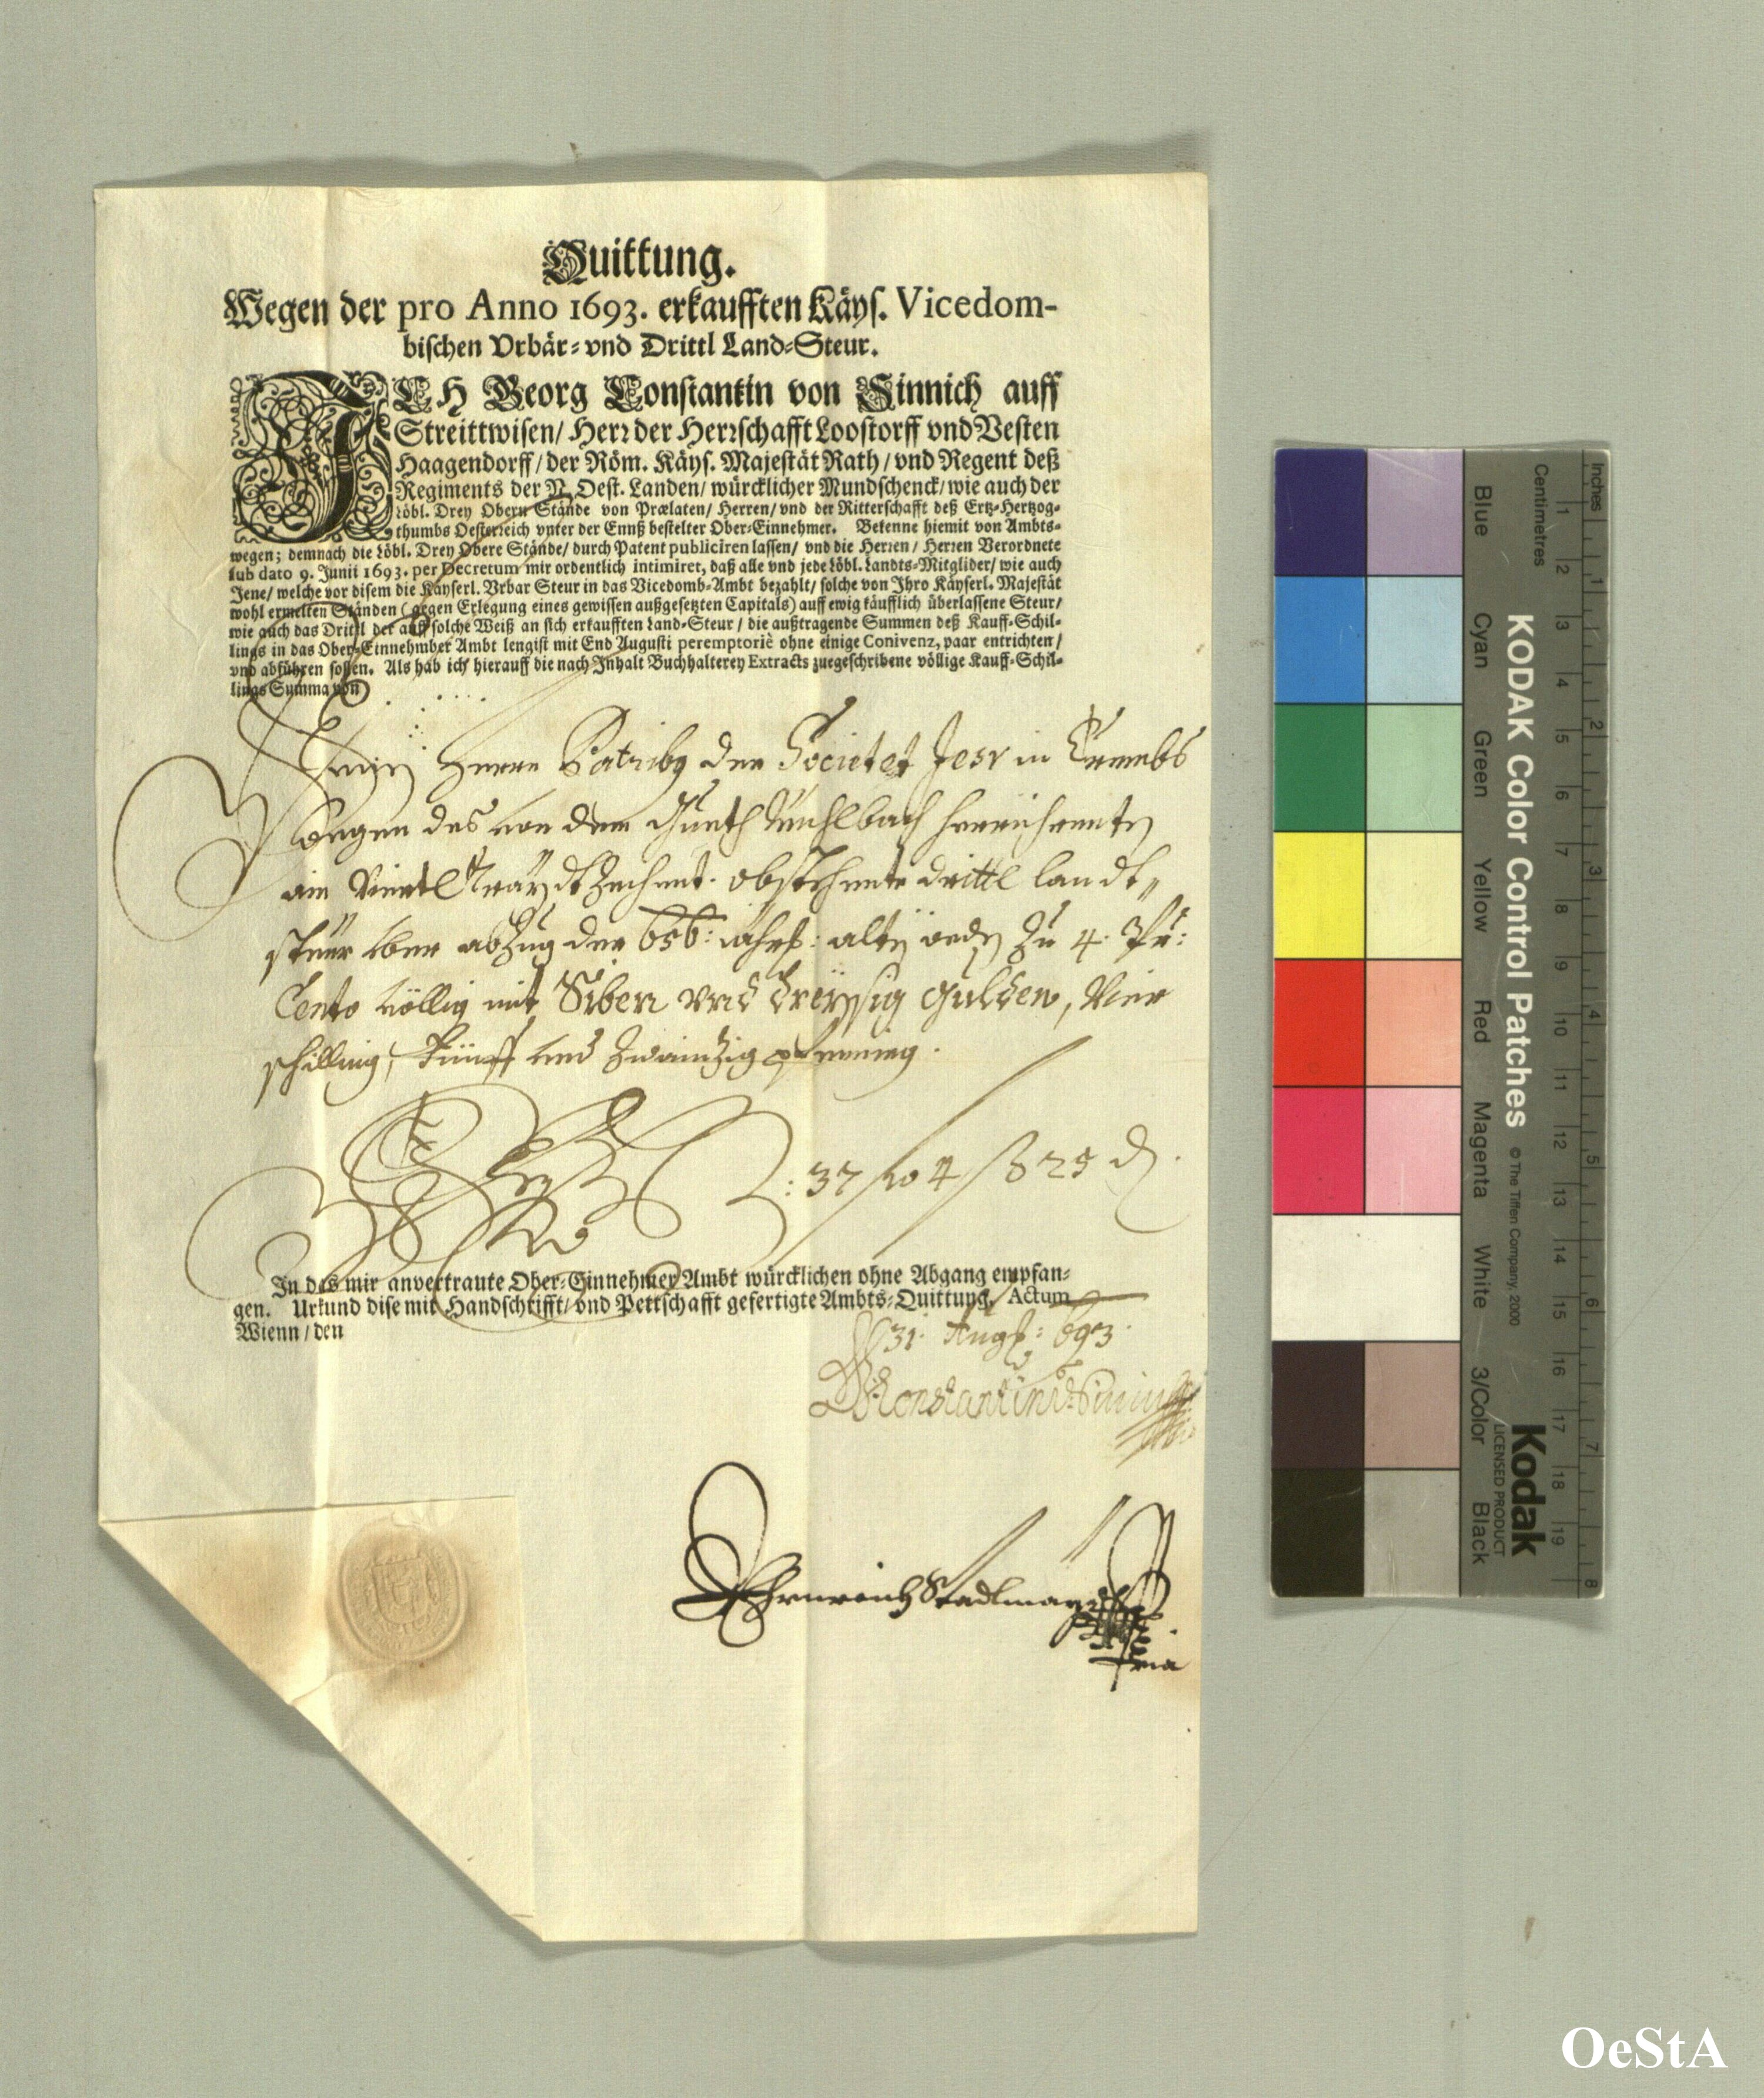 Quittung.
Wegen der pro Anno 1693. erkaufften Käys. Vicedom-
bischen Vrbär- vnd Drittl Land-Steur.
ICH Georg Constantin von Sinnich auff
Streittwisen/ Herr der Herrschafft Loostorff vnd Vesten
Haagendorff/ der Röm. Käys. Majestät Rath/ vnd Regent deß
Regiments der N. Oest. Landen/ würcklicher Mundschenck/ wie auch der
Löbl. Drey Obern Stände von Prælaten/ Herren/ vnd der Ritterschafft deß Ertz-Hertzog-
thumbs Oesterreich vnter der Ennß bestelter Ober-Einnehmer. Bekenne hiemit von Ambts-
wegen; demnach die Löbl. Drey Obere Stände/ durch Patent publiciren lassen/ vnd die Herren/ Herren Verordnete
sub dato 9. Junii 1693. per Decretum mir ordentlich intimiret, daß alle vnd jede Löbl. Landts-Mitglider/ wie auch
Jene/ welche vor disem die Käyserl. Vrbar Steur in das Vicedomb-Ambt bezahlt/ solche von Ihro Käyserl. Majestät
wohl ermelten Ständen (gegen Erlegung eines gewissen außgesetzten Capitals) auff ewig käufflich überlassene Steur/
wie auch das Drittl der auff solche Weiß an sich erkaufften Land-Steur/ die außtragende Summen deß Kauff-Schil-
lings in das Ober-Einnehmber Ambt lengist mit End Augusti peremptoriè ohne einige Conivenz, paar entrichten/
vnd abführen sollen. Als hab ich hierauff die nach Inhalt Buchhalterey Extracts zuegeschribene völlige Kauff-Schil-
lings Summa von
Herrn Patribus der Societet Jesv in Crembs
wegen des von dem Gueth Mühlbach herrührenten
ain Viertl Traydt Zechent. obstehente drittl landt-
steür über abzug der 656: jährl: alten oedn zu 4. Pr:
Cento völlig mit Siben vnd dreyssig Gulden, Vier
schilling, Fünff und zwainzig pfenning.
: 37 fl 4 ß 25 d.
In das mir anvertraute Ober-Einnehmer Ambt würcklichen ohne Abgang empfan-
gen. Urkund dise mit Handschrifft/ vnd Pettschafft gefertigte Ambts-Quittung. Actum
Wienn/ den
31. Augl: 693.
Constantin v: Sinnich
Ehrnreich Stadlmayr
KODAK Color Control Patches
© The Tiffen Company, 2000
Kodak
LICENSED PRODUCT
Inches
Centimetres
1 2 3 4 5 6 7 8
1 2 3 4 5 6 7 8 9 10 11 12 13 14 15 16 17 18 19
Blue
Cyan
Green
Yellow
Red
Magenta
White
3/Color
Black
OeStA